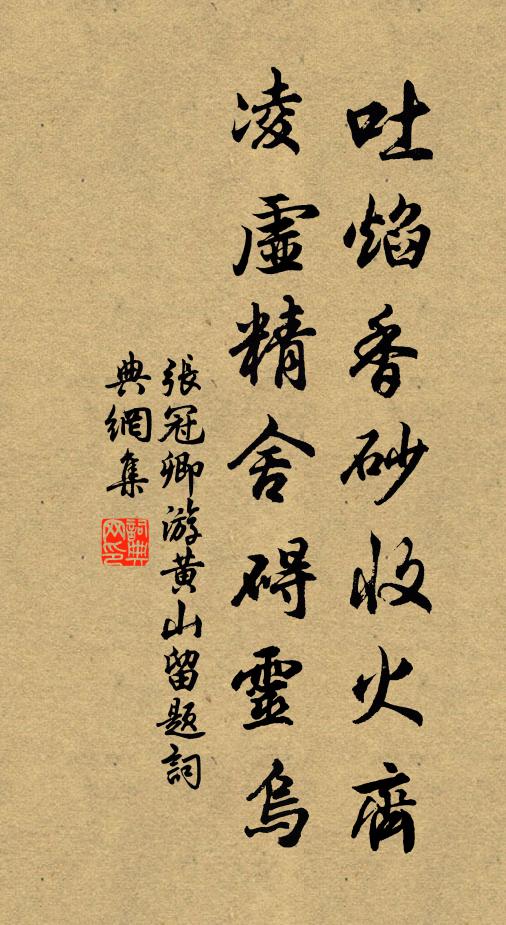 吐焰香砂收火齊
凌虛精舍礙靈烏
張冠卿游黃山留題詞
典網集
詞典網印